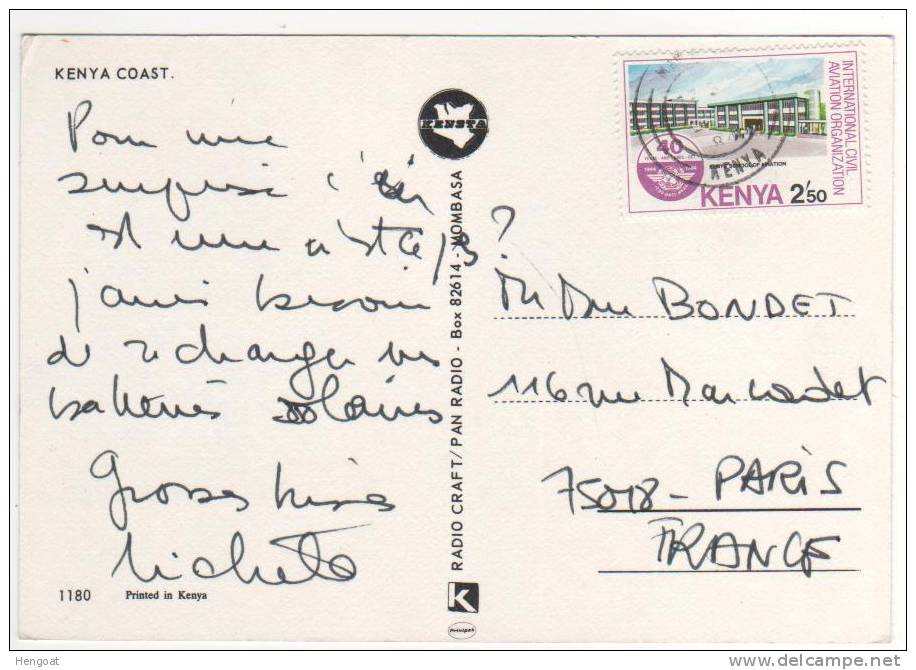 KENYA COAST.
Pour une
surprise c'en
est une n'est ce pas?
j'avais besoin
de recharger mes
batteries solaires
Grosses bises
Michèle
1180 Printed in Kenya
KENSTA
RADIO CRAFT/PAN RADIO - Box 82614 - MOMBASA
K
Principal
INTERNATIONAL CIVIL
AVIATION ORGANIZATION
40
1944
KENYA
KENYA 2/50
M Mme BONDET
116 rue Marcadet
75018 - PARIS
FRANCE
Hengoat
delcampe.net